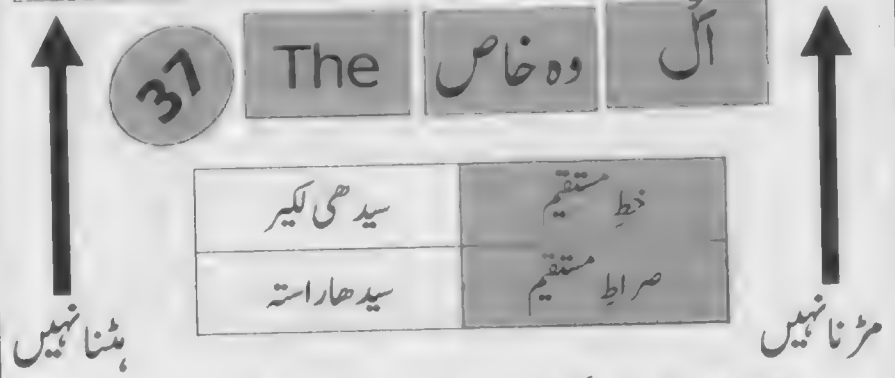 اَلُ وہ خاص The 37
خطِ مستقیم سیدھی لکیر
صراطِ مستقیم سیدھا راستہ
مڑنا نہیں ہٹنا نہیں